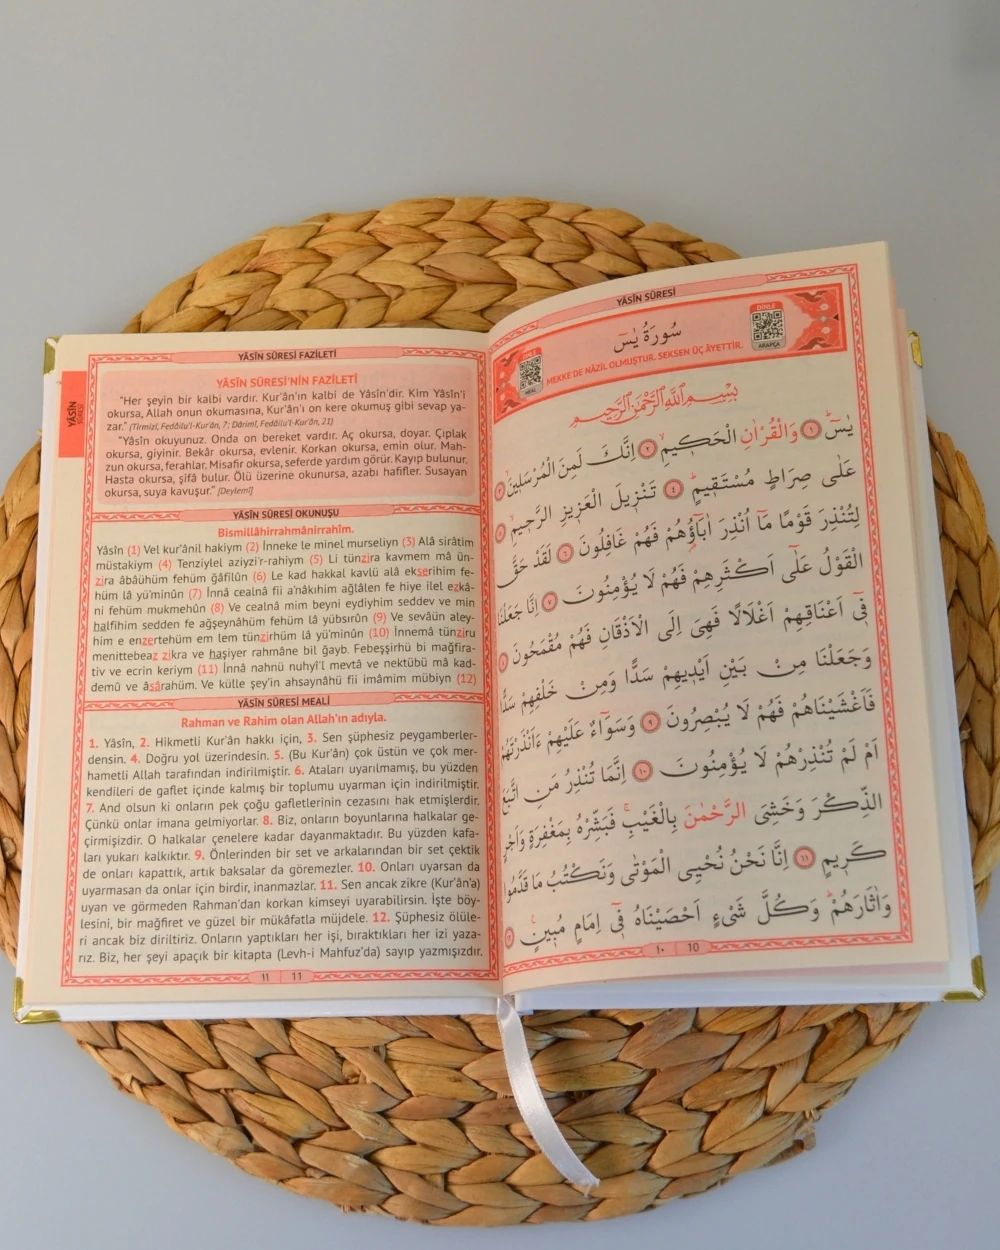 YÂSÎN SÛRESİ
DİNLE
MEAL
سُورَةُ يٰسٓ
MEKKE'DE NÂZİL OLMUŞTUR. SEKSEN ÜÇ ÂYETTİR.
DİNLE
ARAPÇA
بِسْمِ اللّٰهِ الرَّحْمٰنِ الرَّحِيمِ
يٰسٓۚ ﴿١﴾ وَالْقُرْاٰنِ الْحَكِيمِۙ ﴿٢﴾ اِنَّكَ لَمِنَ الْمُرْسَلِينَۙ ﴿٣﴾
عَلٰى صِرَاطٍ مُسْتَقِيمٍۜ ﴿٤﴾ تَنْزِيلَ الْعَزِيزِ الرَّحِيمِۙ ﴿٥﴾
لِتُنْذِرَ قَوْمًا مَٓا اُنْذِرَ اٰبَٓاؤُ۬هُمْ فَهُمْ غَافِلُونَ ﴿٦﴾ لَقَدْ حَقَّ
الْقَوْلُ عَلٰٓى اَكْثَرِهِمْ فَهُمْ لَا يُؤْمِنُونَ ﴿٧﴾ اِنَّا جَعَلْنَا
فٖٓي اَعْنَاقِهِمْ اَغْلَالًا فَهِيَ اِلَى الْاَذْقَانِ فَهُمْ مُقْمَحُونَ ﴿٨﴾
وَجَعَلْنَا مِنْ بَيْنِ اَيْدٖيهِمْ سَدًّا وَمِنْ خَلْفِهِمْ سَدًّا
فَاَغْشَيْنَاهُمْ فَهُمْ لَا يُبْصِرُونَ ﴿٩﴾ وَسَوَٓاءٌ عَلَيْهِمْ ءَاَنْذَرْتَهُمْ
اَمْ لَمْ تُنْذِرْهُمْ لَا يُؤْمِنُونَ ﴿١٠﴾ اِنَّمَا تُنْذِرُ مَنِ اتَّبَعَ
الذِّكْرَ وَخَشِيَ الرَّحْمٰنَ بِالْغَيْبِۚ فَبَشِّرْهُ بِمَغْفِرَةٍ وَاَجْرٍ
كَرٖيمٍ ﴿١١﴾ اِنَّا نَحْنُ نُحْيِي الْمَوْتٰى وَنَكْتُبُ مَا قَدَّمُوا
وَاٰثَارَهُمْۜ وَكُلَّ شَيْءٍ اَحْصَيْنَاهُ فٖٓي اِمَامٍ مُبٖينٍ۟ ﴿١٢﴾
١٠ 10
YÂSÎN SÛRESİ FAZİLETİ
YÂSÎN
SÛRESİ
YÂSÎN SÛRESİ'NİN FAZİLETİ
"Her şeyin bir kalbi vardır. Kur'ân'ın kalbi de Yâsîn'dir. Kim Yâsîn'i
okursa, Allah onun okumasına, Kur'ân'ı on kere okumuş gibi sevap ya-
zar." (Tirmizî, Fedâilu'l-Kur'ân, 7; Dârimî, Fedâilu'l-Kur'ân, 21)
"Yâsîn okuyunuz. Onda on bereket vardır. Aç okursa, doyar. Çıplak
okursa, giyinir. Bekâr okursa, evlenir. Korkan okursa, emin olur. Mah-
zun okursa, ferahlar. Misafir okursa, seferde yardım görür. Kayıp bulunur.
Hasta okursa, şifâ bulur. Ölü üzerine okunursa, azabı hafifler. Susayan
okursa, suya kavuşur." [Deylemî]
YÂSÎN SÛRESİ OKUNUŞU
Bismillâhirrahmânirrahîm.
Yâsîn (1) Vel kur'ânil hakiym (2) İnneke le minel murseliyn (3) Alâ sirâtim
müstakiym (4) Tenziylel aziyzi'r-rahiym (5) Li tünzira kavmem mâ ün-
zira âbâühüm fehüm ğâfilûn (6) Le kad hakkal kavlü alâ ekserihim fe-
hüm lâ yü'minûn (7) İnnâ cealnâ fii a'nâkıhim ağlâlen fe hiye ilel ezkâ-
ni fehüm mukmehûn (8) Ve cealnâ mim beyni eydiyhim seddev ve min
halfihim sedden fe ağşeynâhüm fehüm lâ yübsırûn (9) Ve sevâün aley-
him e enzertehüm em lem tünzirhüm lâ yü'minûn (10) İnnemâ tünziru
menittebeaz zikra ve haşiyer rahmâne bil ğayb. Febeşşirhü bi mağfira-
tiv ve ecrin keriym (11) İnnâ nahnü nuhyî'l mevtâ ve nektübü mâ kad-
demû ve âsârahüm. Ve külle şey'in ahsaynâhü fii imâmim mübiyn (12)
YÂSÎN SÛRESİ MEALİ
Rahman ve Rahim olan Allah'ın adıyla.
1. Yâsîn, 2. Hikmetli Kur'ân hakkı için, 3. Sen şüphesiz peygamberler-
densin. 4. Doğru yol üzerindesin. 5. (Bu Kur'ân) çok üstün ve çok mer-
hametli Allah tarafından indirilmiştir. 6. Ataları uyarılmamış, bu yüzden
kendileri de gaflet içinde kalmış bir toplumu uyarman için indirilmiştir.
7. And olsun ki onların pek çoğu gafletlerinin cezasını hak etmişlerdir.
Çünkü onlar imana gelmiyorlar. 8. Biz, onların boyunlarına halkalar ge-
çirmişizdir. O halkalar çenelere kadar dayanmaktadır. Bu yüzden kafa-
ları yukarı kalkıktır. 9. Önlerinden bir set ve arkalarından bir set çektik
de onları kapattık, artık baksalar da göremezler. 10. Onları uyarsan da
uyarmasan da onlar için birdir, inanmazlar. 11. Sen ancak zikre (Kur'ân'a)
uyan ve görmeden Rahman'dan korkan kimseyi uyarabilirsin. İşte böy-
lesini, bir mağfiret ve güzel bir mükâfatla müjdele. 12. Şüphesiz ölüle-
ri ancak biz diriltiriz. Onların yaptıkları her işi, bıraktıkları her izi yaza-
rız. Biz, her şeyi apaçık bir kitapta (Levh-i Mahfuz'da) sayıp yazmışızdır.
١١ 11